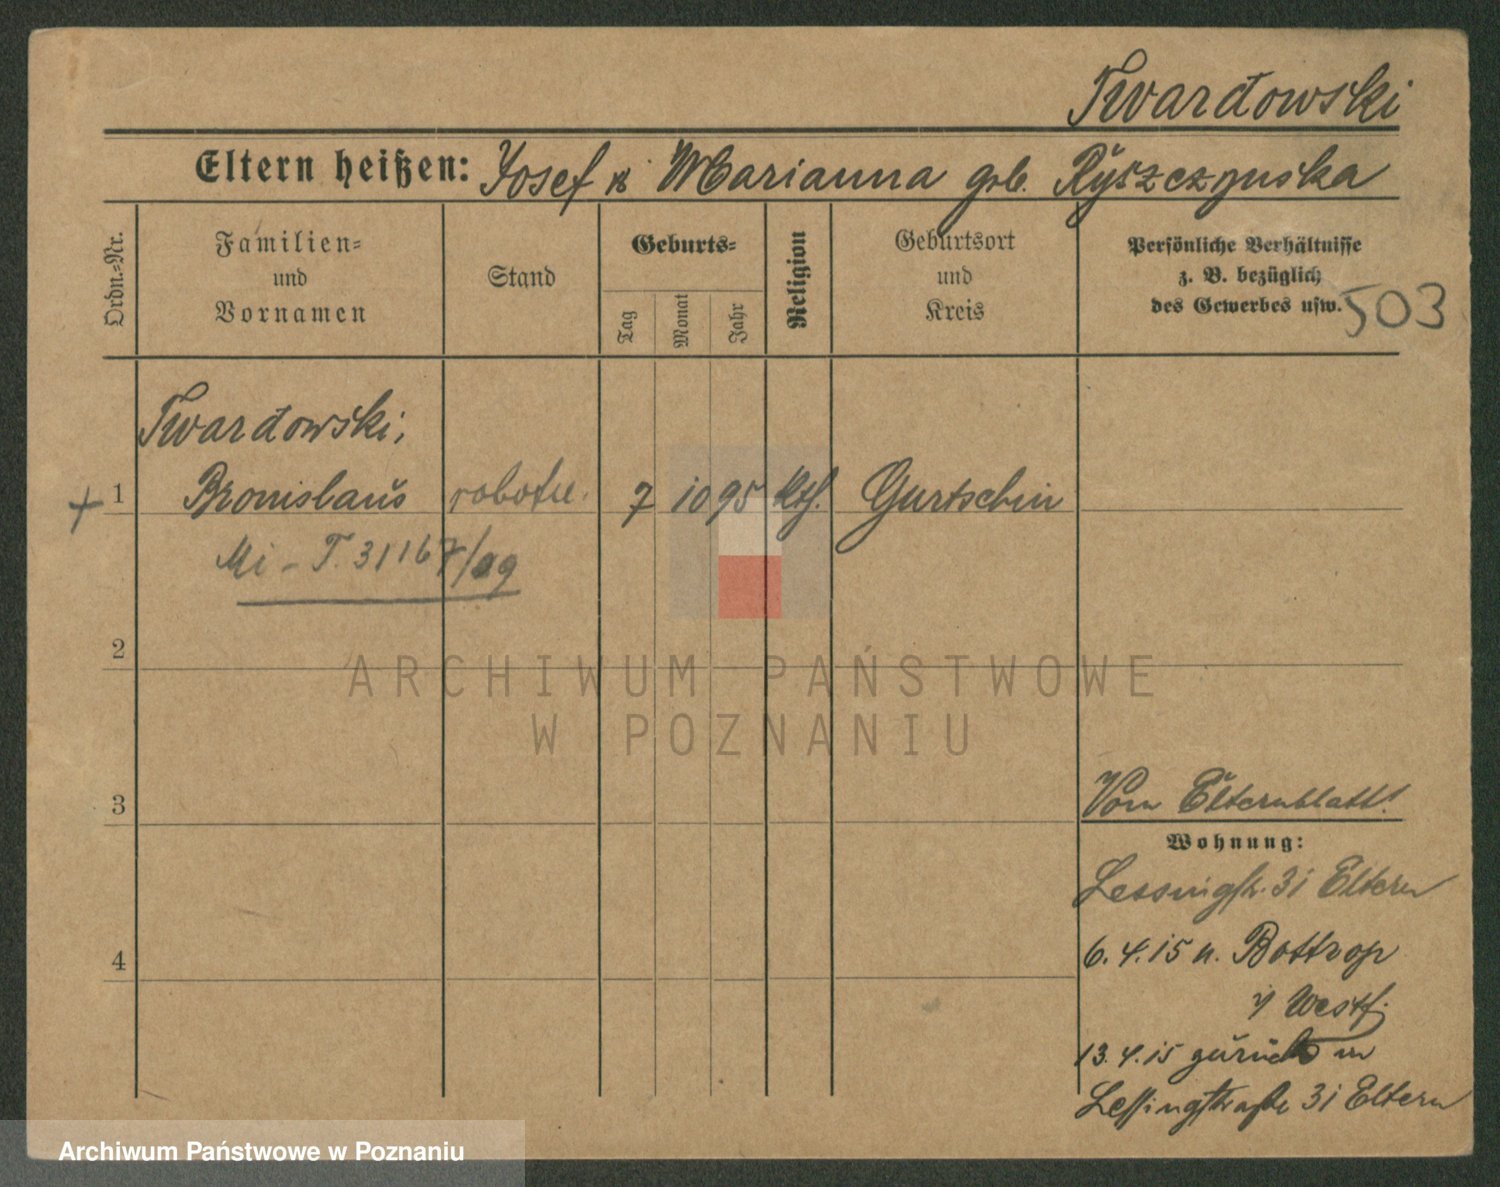 Twardowski
Eltern heißen: Josef & Marianna geb. Ryszczynska
Ordn.-Nr.
Familien-
und
Vornamen
Stand
Geburts-
Tag
Monat
Jahr
Religion
Geburtsort
und
Kreis
Persönliche Verhältnisse
z. B. bezüglich
des Gewerbes usw.
503
Twardowski,
+ 1 Bronislaus 7 10 95 Kth. Gurtschin
Mi - T. 31167/19
2
ARCHIWUM PAŃSTWOWE
W POZNANIU
3
Vom Elternblatt!
Wohnung:
Lessingstr. 31 Eltern
4
6.4.15 n. Bottrop
i/ Westf.
13.4.15 zurück in
Lessingstraße 31 Eltern
Archiwum Państwowe w Poznaniu